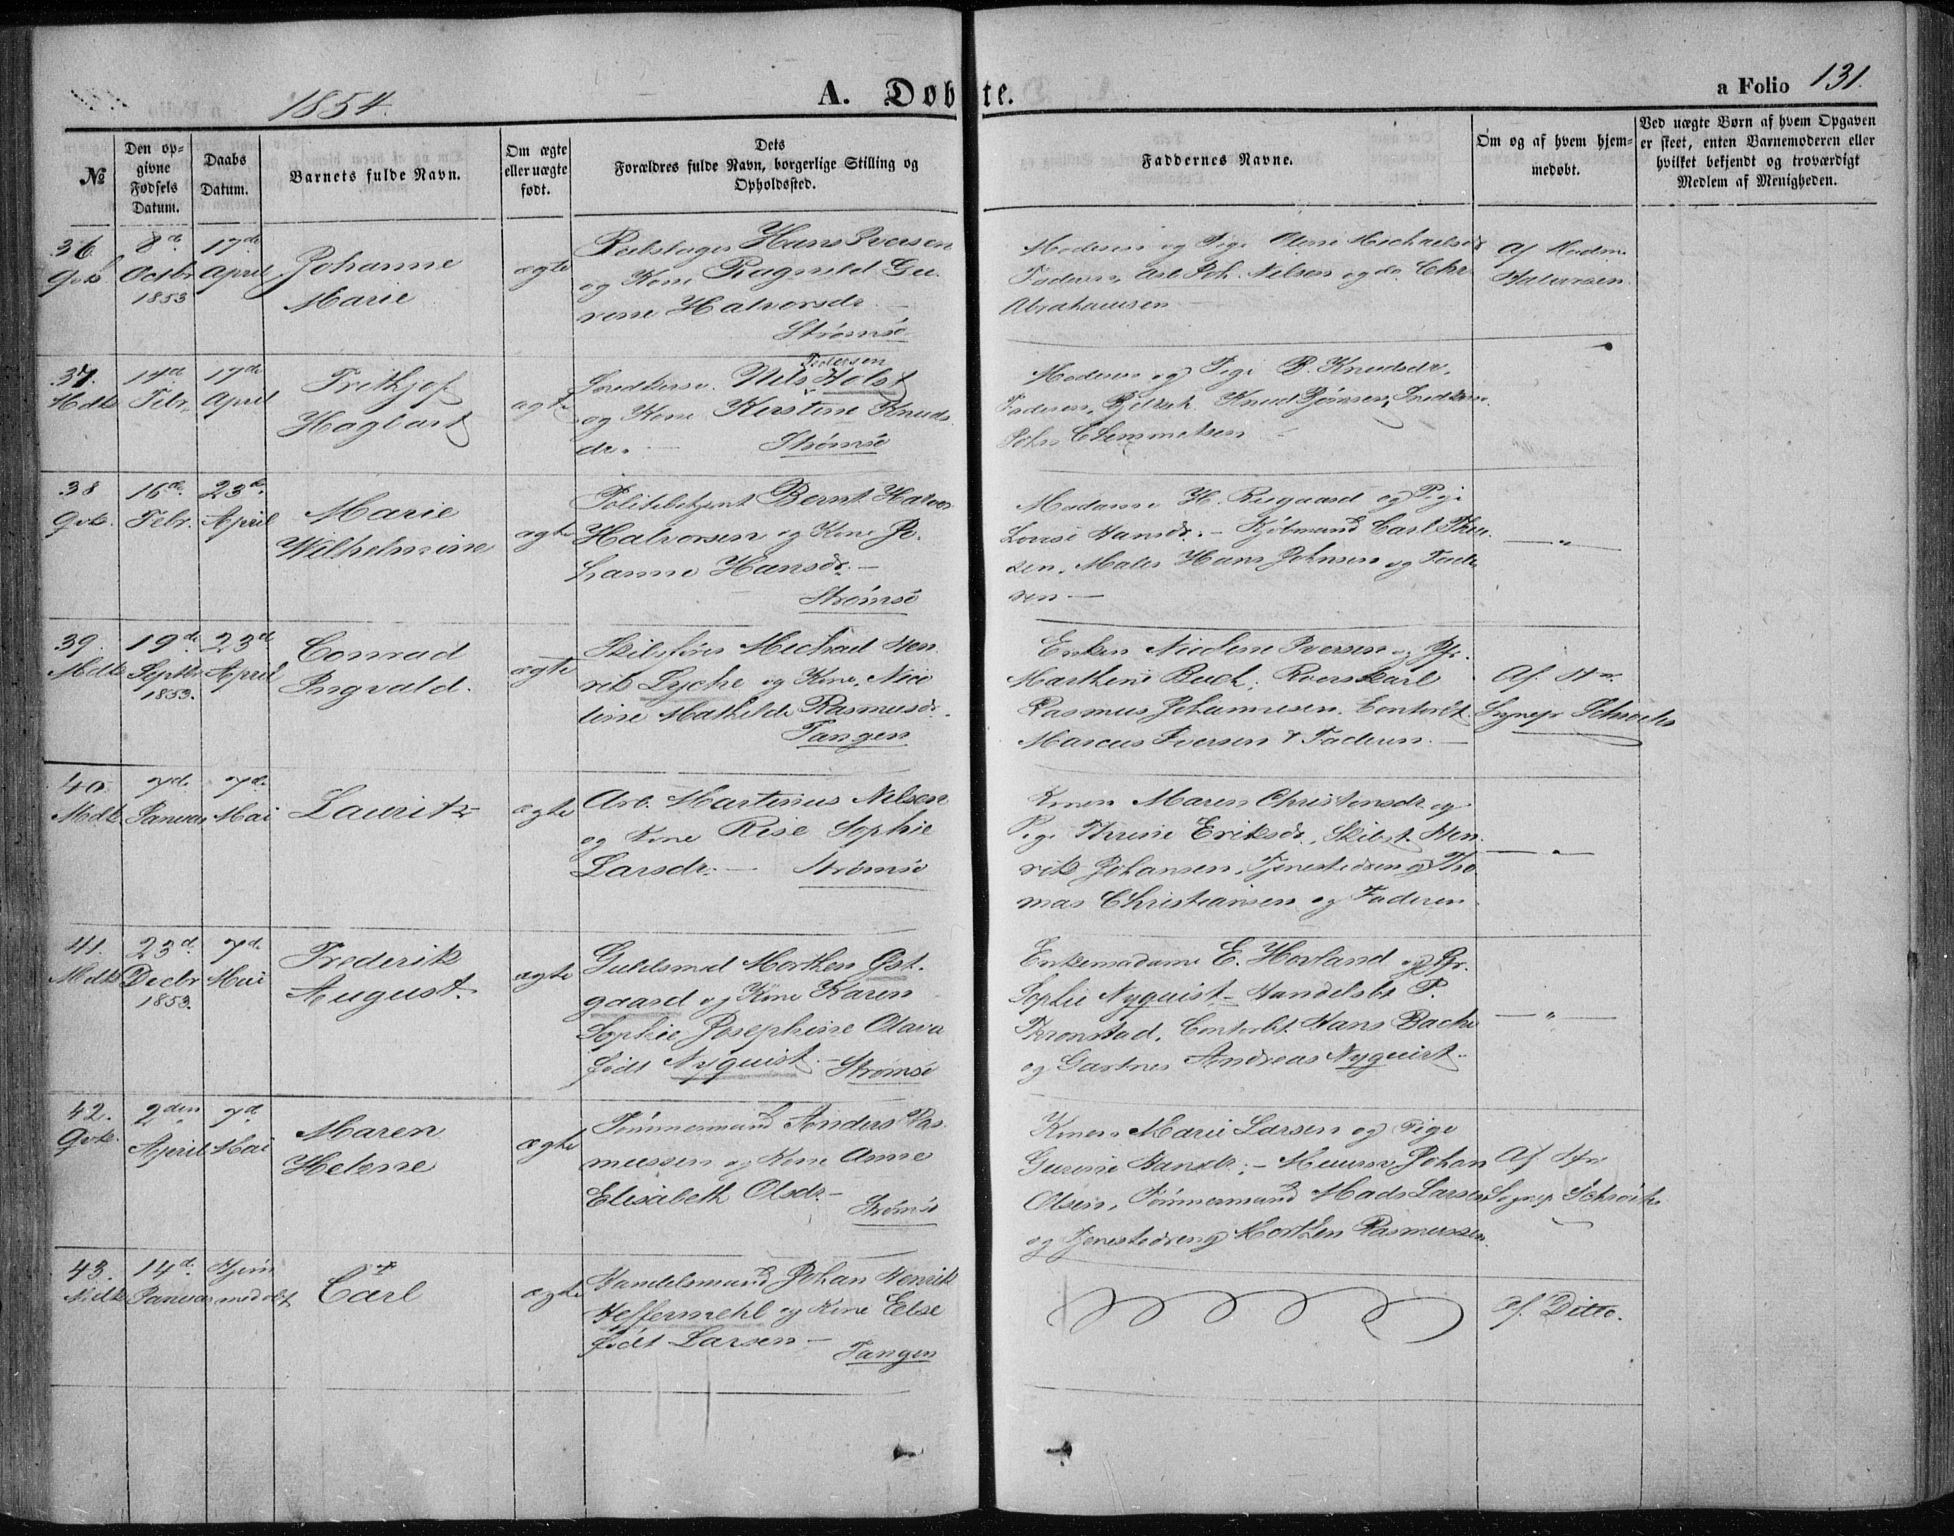 1854.
A. Døbte.
a Folio 131.
№
Den opgivne Fødsels Datum.
Daabs Datum.
Barnets fulde Navn.
Om ægte eller uægte født.
Dets Forældres fulde Navn, borgerlige Stilling og Opholdssted.
Faddernes Navne.
Om og af hvem hjemmedøbt.
Ved uægte Børn af hvem Opgaven er skeet, enten Barnemoderen eller hvilket bekjendt og troværdigt Medlem af Menigheden.
36
Qvk
8de Octbr 1853
17de April
Johanne
Marie
ægte
Hans Iversen
og Kone Ragnild Gu-
rine Halvorsdr
Strømsø
Moderen og Pige Oline Michaelsdr
Faderen, Joh. Nilsen og Chr
Abrahamsen
Af Madm.
Halvorsen
37.
Mdk
14de Febr.
17de April
Frithjof
Hagbart
ægte
Snedkersv. Nils Pedersen Holst
og Kone Kirstine Knuds
dr. —
Strømsø
Moderen og Pige B. Knudsdr,
Faderen, Knud Snedkersv
Joh. Clemmetsen
38
Qvk.
16de Febr.
23de April
Marie
Wilhelmine
ægte
Politibetjent Bernt Halvor
Halvorsen og Kone Jo-
hanne Hansdr. —
Strømsø
Madame H. Rugaard og Pige
Lovise Hansdr. — Kjøbmand Carl Thur-
sen, Maler Hans Johnsen og Fade-
ren —
— " —
39.
Mdk
19de Septbr 1853.
23de April
Conrad
Ingvald.
ægte
Skibsfører Michael Hen-
rik Lyche og Kone Nico
line Mathilde Rasmusdr.
Tangen
Enken Nicoline Iversen og Jfr.
Marthine Buch, Roerskarl
Rasmus Johannesen. Contorbt.
Marcus Iversen & Faderen. —
Af Hr.
Sognepr Schrøder
40.
Mdk.
7de Januar
7de Mai
Lauritz
ægte
Arb. Martinus Nilsen
og Kone Rise Sophie
Larsdr. — Strømsø
Konen Maren Christensdr og
Pige Thrine Eriksdr, Skibst. Hen-
rik Johansen, Tjenestedreng Tho
mas Christiansen og Faderen
— " —
41.
Mdk
23de Decbr 1853.
7de Mai
Frederik
August.
ægte
Guldsmed Morthen Øst-
gaard og Kone Karen
Sophie Josephine Olava
født Nyquist. — Strømsø
Enkemadame E. Hovland og Jfr.
Sophie Nyquist — Handelsbt P.
Thronstad, Contorbt Hans Bache
og Gartner Andreas Nyquist.
— " —
42.
Qvk.
2den April
7de Mai
Maren
Helene
ægte
Tømmermand Anders Ras-
mussen og Kone Anne
Elisabeth Olsdr —
Strømsø
Konen Marie Larsen og Pige
Gurine Hansdr; — Muurm. Johan
Olsen, Tømmermand Mads Larsen
og Tjenestedreng Morthen Rasmussen.
Af Hr
Sognepr Schrøder
43.
Mdk
14de Januar
Hjem
medøbt
†
Carl
ægte
Handelsmand Johan Henrik
Heffermehl og Kone Elise
født Larsen —
Tangen
af Ditto.